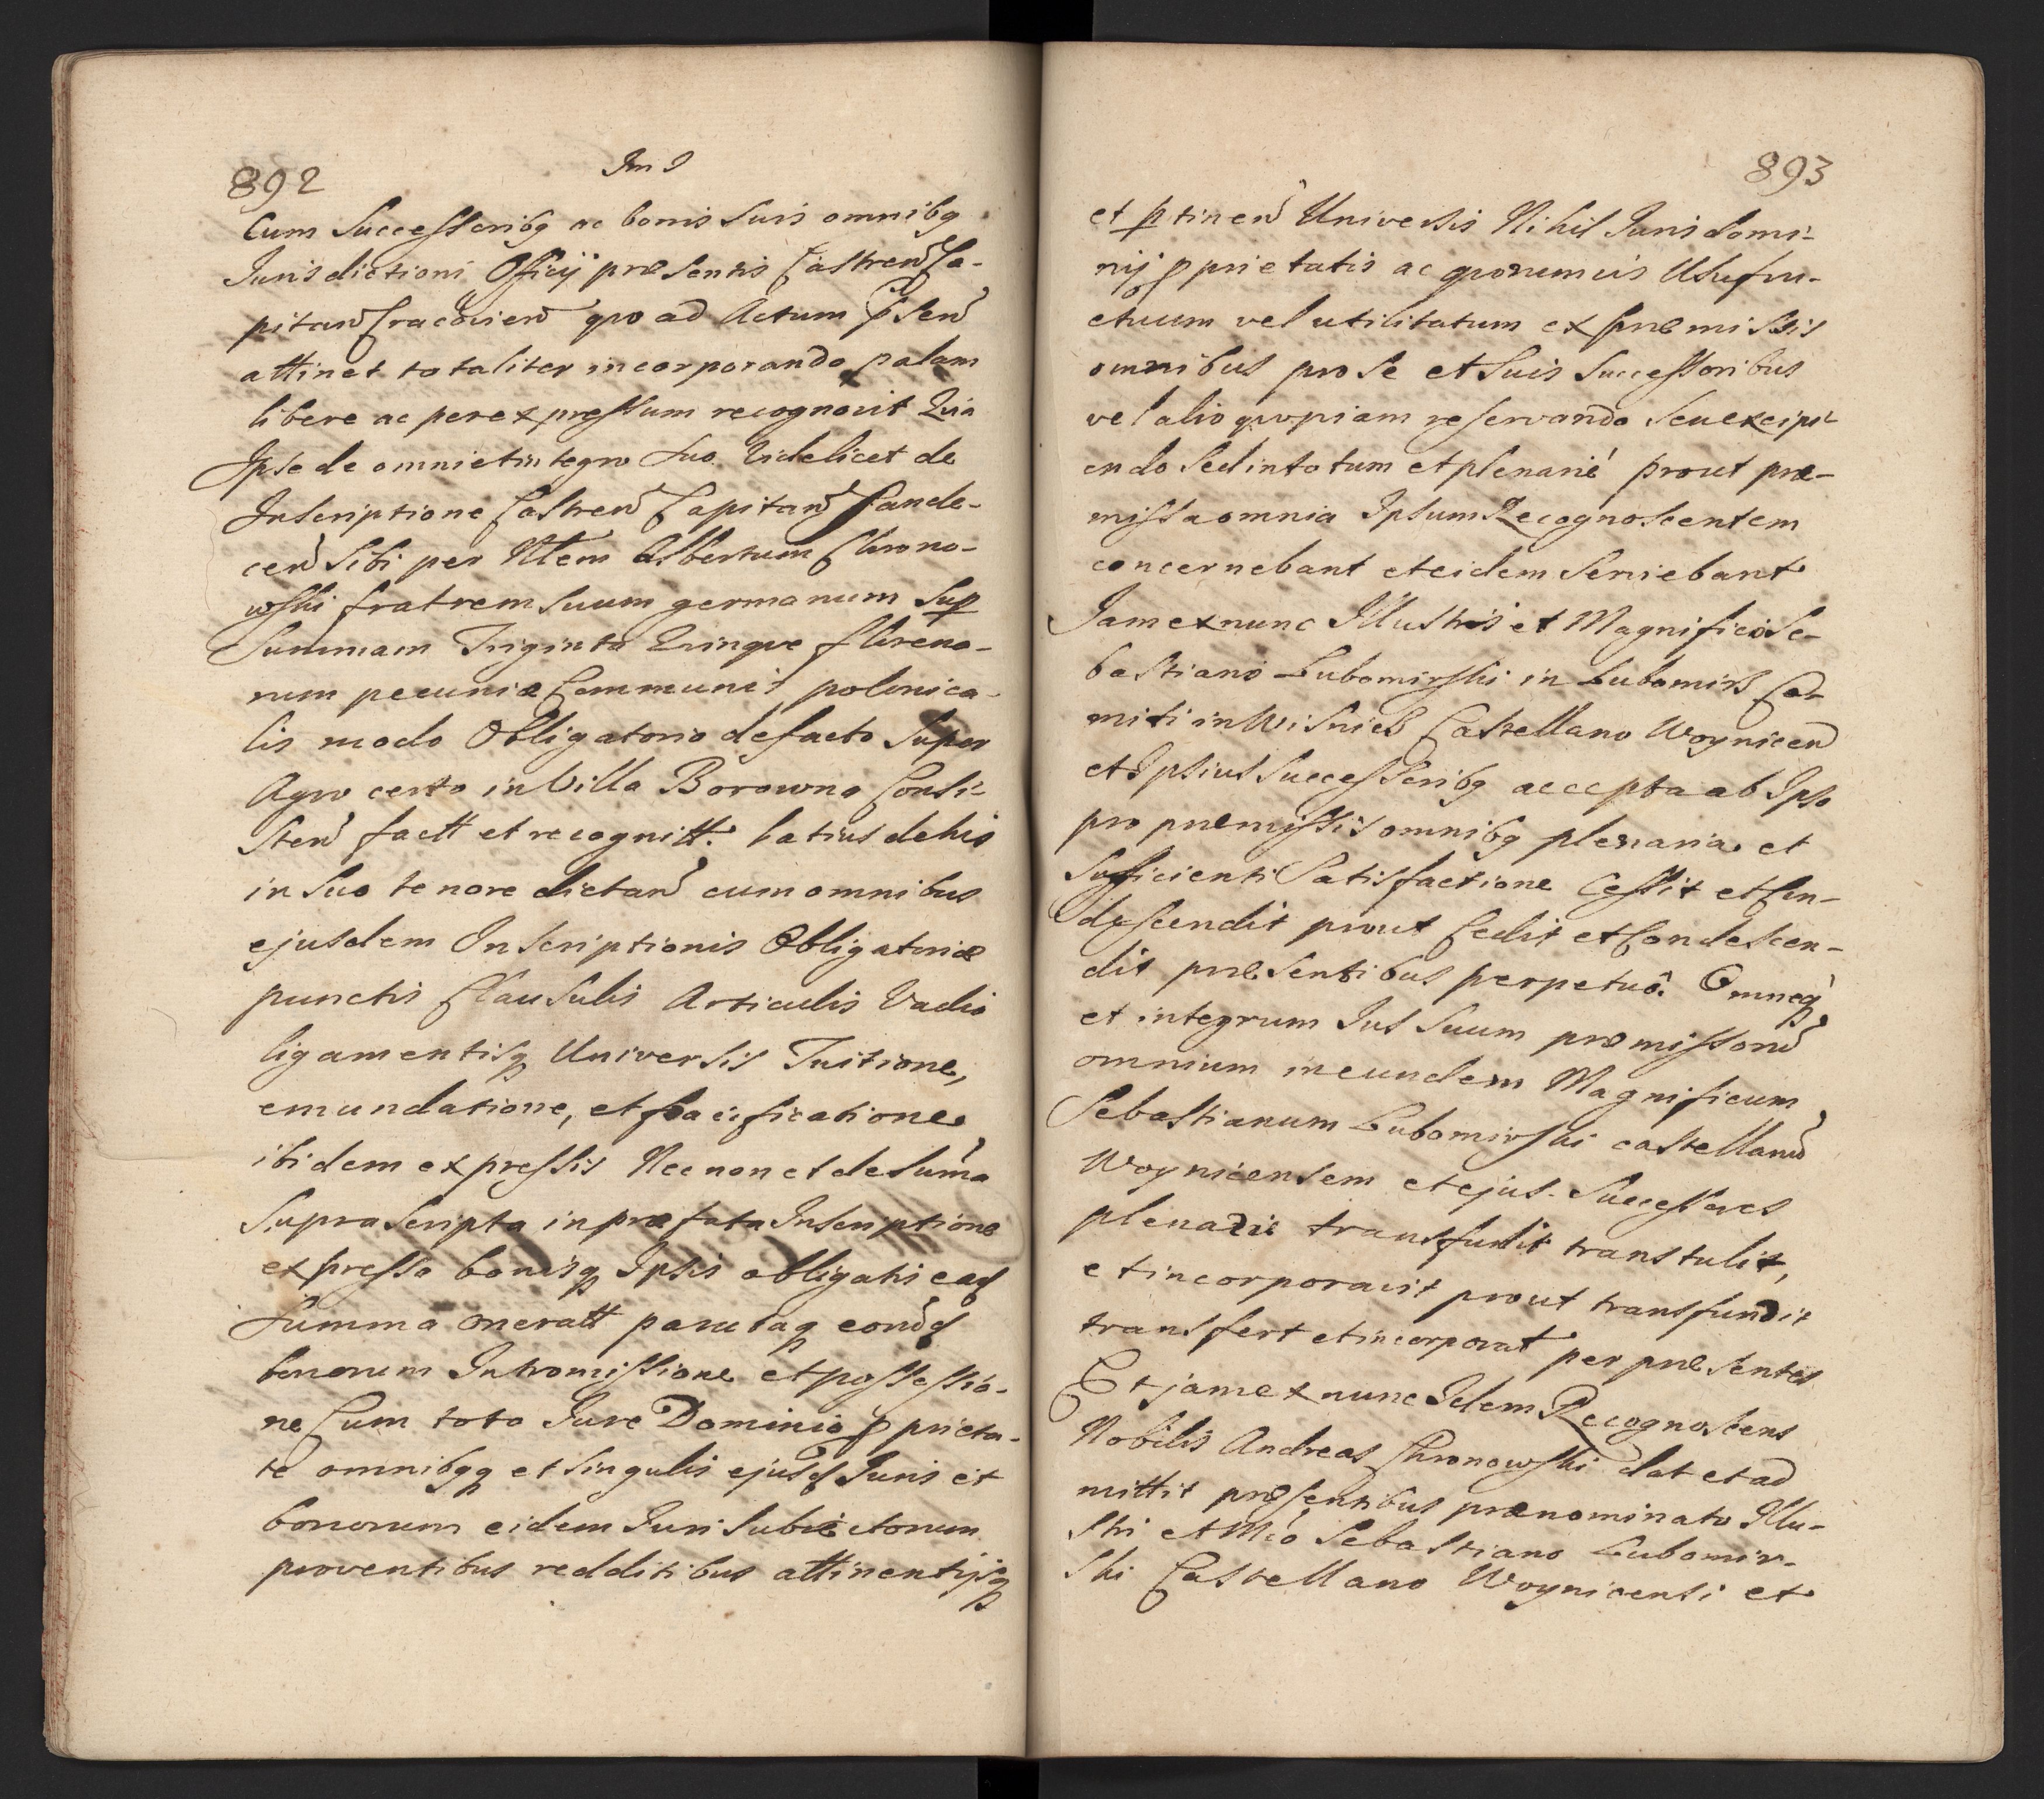 892
Im I
Cum Successoribq ac bonis Suis omnibq
Jurisdictioni Officij præsentis Castren Ca-
pitan Cracovien quoad Actum pnsen
attinet totaliter incorporando palam
libere ac per expressum recognovit Quia
Ipse de omni et integro suo Videlicet de
Inscriptione Castren Capitan Sande-
cen Sibi per Nblem Albertum Chrono-
wski fratrem Suum germanum Sup
Summam Triginta Quinque floreno-
rum pecuniæ Communis polonica-
lis modo Obligatorio de facto Super
Agro certo in Villa Borowna Consi-
sten factt et recognitt. latius de his
in Suo tenore dictan cum omnibus
ejusdem Inscriptionis Obligatoriæ
punctis Clausulis Articulis Vadio
ligamentisq Universis Tuitione,
emundatione, et pacificatione
ibidem expressis Nec non et de Suma
Suprascripta in præfata Inscriptione
expressa bonisq Ipsis obligatis ead
Summa oneratt parataq eond
bonorum Intromissione et possessio-
ne Cum toto Jure Dominio pprieta-
te omnibqq et Singulis ejusd Juris et
bonorum eidem Juri Subiectorum
proventibus redditibus attinentijsq
893
et ptinen Universis Nihil Juris domi-
nij pprietatis ac quorumvis Usufru-
ctuum vel utilitatum ex præmissis
omnibus pro Se et Suis Successoribus
vel alio quopiam reservando Seu excipi-
endo Sed in totum et plenariè prout præ-
missa omnia Ipsum Recognoscentem
concernebant et eidem Serviebant
Jam ex nunc Illustris et Magnifico Se-
bastiano Lubomirski in Lubomirz Co-
miti in Wisnicz Castellano Woynicen
et Ipsius Successoribq accepta ab Ipso
pro præmissis omnibq plenaria et
Sufficienti Satisfactione Cessit et Con-
descendit prout Cedit et Condescen-
dit præsentibus perpetuô. Omneq
et integrum Jus Suum præmissorũ
omnium in eundem Magnificum
Sebastianum Lubomirski castellanũ
Woynicensem et ejus Successores
plenarie transfudit transtulit,
et incorporavit prout transfundit
transfert et incorporat per præsentes
Et jam ex nunc Idem Recognoscens
Nobilis Andreas Chronowski dat et ad
mittit præsentibus prænominato Illu-
stri et Mco Sebastiano Lubomir-
ski Castellano Woynicensi et